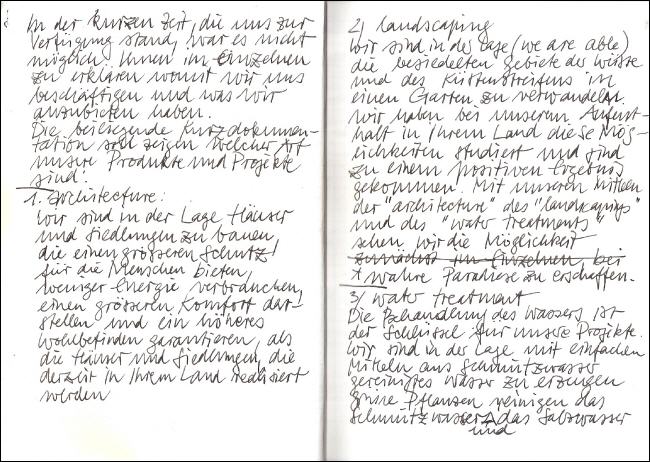 In der kurzen Zeit, die uns zur
Verfügung stand, war es nicht
möglich Ihnen im einzelnen
zu erklären womit wir uns
beschäftigen und was wir
anzubieten haben.
Die beiliegende Kurzdokumen-
tation soll zeigen welcher Art
unsere Produkte und Projekte
sind:
1. architecture:
Wir sind in der Lage Häuser
und Siedlungen zu bauen,
die einen grösseren Schutz
für die Menschen bieten,
weniger Energie verbrauchen,
einen grösseren Komfort dar-
stellen und ein höheres
Wohlbefinden garantieren, als
die Häuser und Siedlungen, die
derzeit in Ihrem Land realisiert
werden
2/ landscaping
Wir sind in der Lage (we are able)
die besiedelten Gebiete der Wüste
und des Küstenstreifens in
einen Garten zu verwandeln.
Wir haben bei unserem Aufent-
halt in Ihrem Land diese Mög-
lichkeiten studiert und sind
zu einem positiven Ergebnis
gekommen. Mit unseren Mitteln
der "architecture" des "landscapings"
und des "water treatments"
sehen wir die Möglichkeit
zunächst im Einzelnen, bei
wahre Paradiese zu erschaffen.
3/ water treatment
Die Behandlung des Wassers ist
der Schlüssel für unsere Projekte.
Wir sind in der Lage mit einfachen
Mitteln aus Schmutzwasser
gereinigtes Wasser zu erzeugen
grüne Pflanzen reinigen das
Schmutzwasser das Salzwasser
und